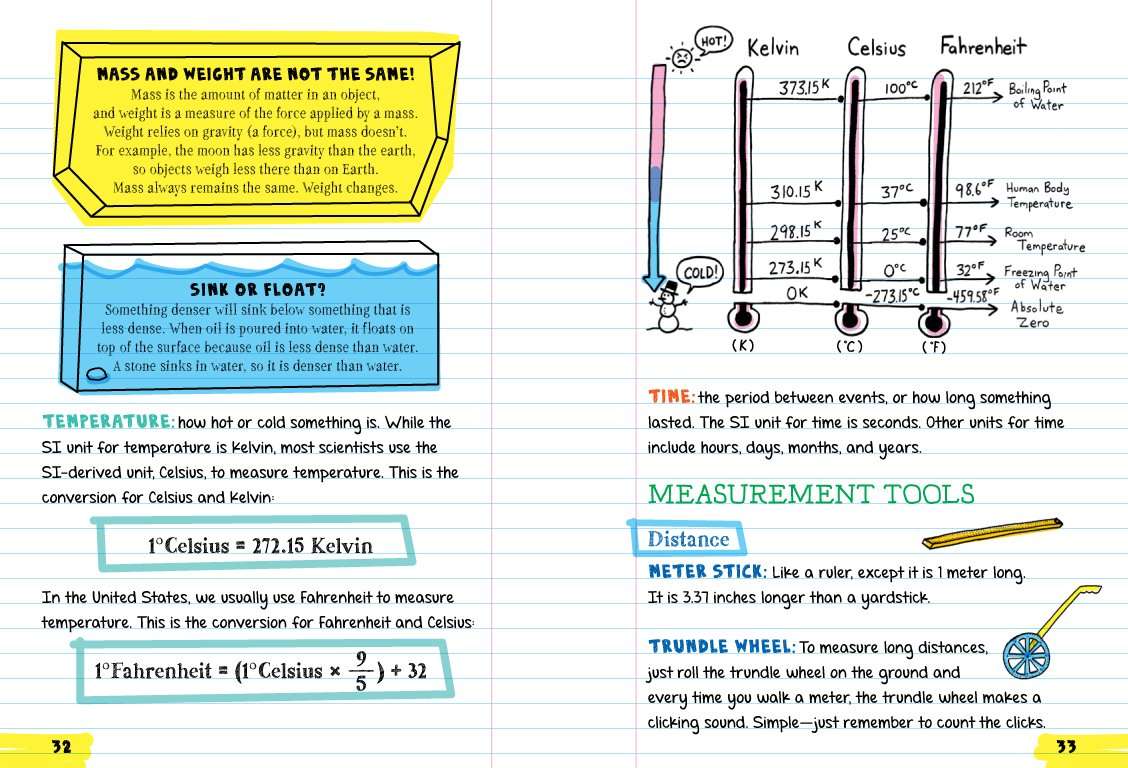 MASS AND WEIGHT ARE NOT THE SAME!
Mass is the amount of matter in an object,
and weight is a measure of the force applied by a mass.
Weight relies on gravity (a force), but mass doesn't.
For example, the moon has less gravity than the earth,
so objects weigh less there than on Earth.
Mass always remains the same. Weight changes.
SINK OR FLOAT?
Something denser will sink below something that is
less dense. When oil is poured into water, it floats on
top of the surface because oil is less dense than water.
A stone sinks in water, so it is denser than water.
TEMPERATURE: how hot or cold something is. While the
SI unit for temperature is Kelvin, most scientists use the
SI-derived unit, Celsius, to measure temperature. This is the
conversion for Celsius and Kelvin:
1°Celsius = 272.15 Kelvin
In the United States, we usually use Fahrenheit to measure
temperature. This is the conversion for Fahrenheit and Celsius:
1°Fahrenheit = (1°Celsius × 9/5) + 32
32
HOT!
Kelvin Celsius Fahrenheit
373.15 K 100°C 212°F Boiling Point
of Water
310.15 K 37°C 98.6°F Human Body
Temperature
298.15 K 25°C 77°F Room
Temperature
273.15 K 0°C 32°F Freezing Point
of Water
COLD!
0K -273.15°C -459.58°F Absolute
Zero
(K) (°C) (°F)
TIME: the period between events, or how long something
lasted. The SI unit for time is seconds. Other units for time
include hours, days, months, and years.
MEASUREMENT TOOLS
Distance
METER STICK: Like a ruler, except it is 1 meter long.
It is 3.37 inches longer than a yardstick.
TRUNDLE WHEEL: To measure long distances,
just roll the trundle wheel on the ground and
every time you walk a meter, the trundle wheel makes a
clicking sound. Simple—just remember to count the clicks.
33